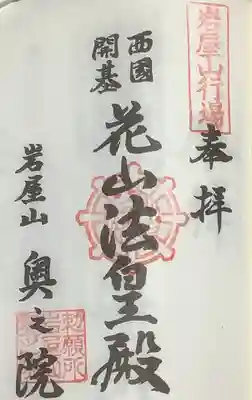 岩屋山行場
奉拝
西國
開基
花山法皇殿
岩屋山 奥之院
勅願所